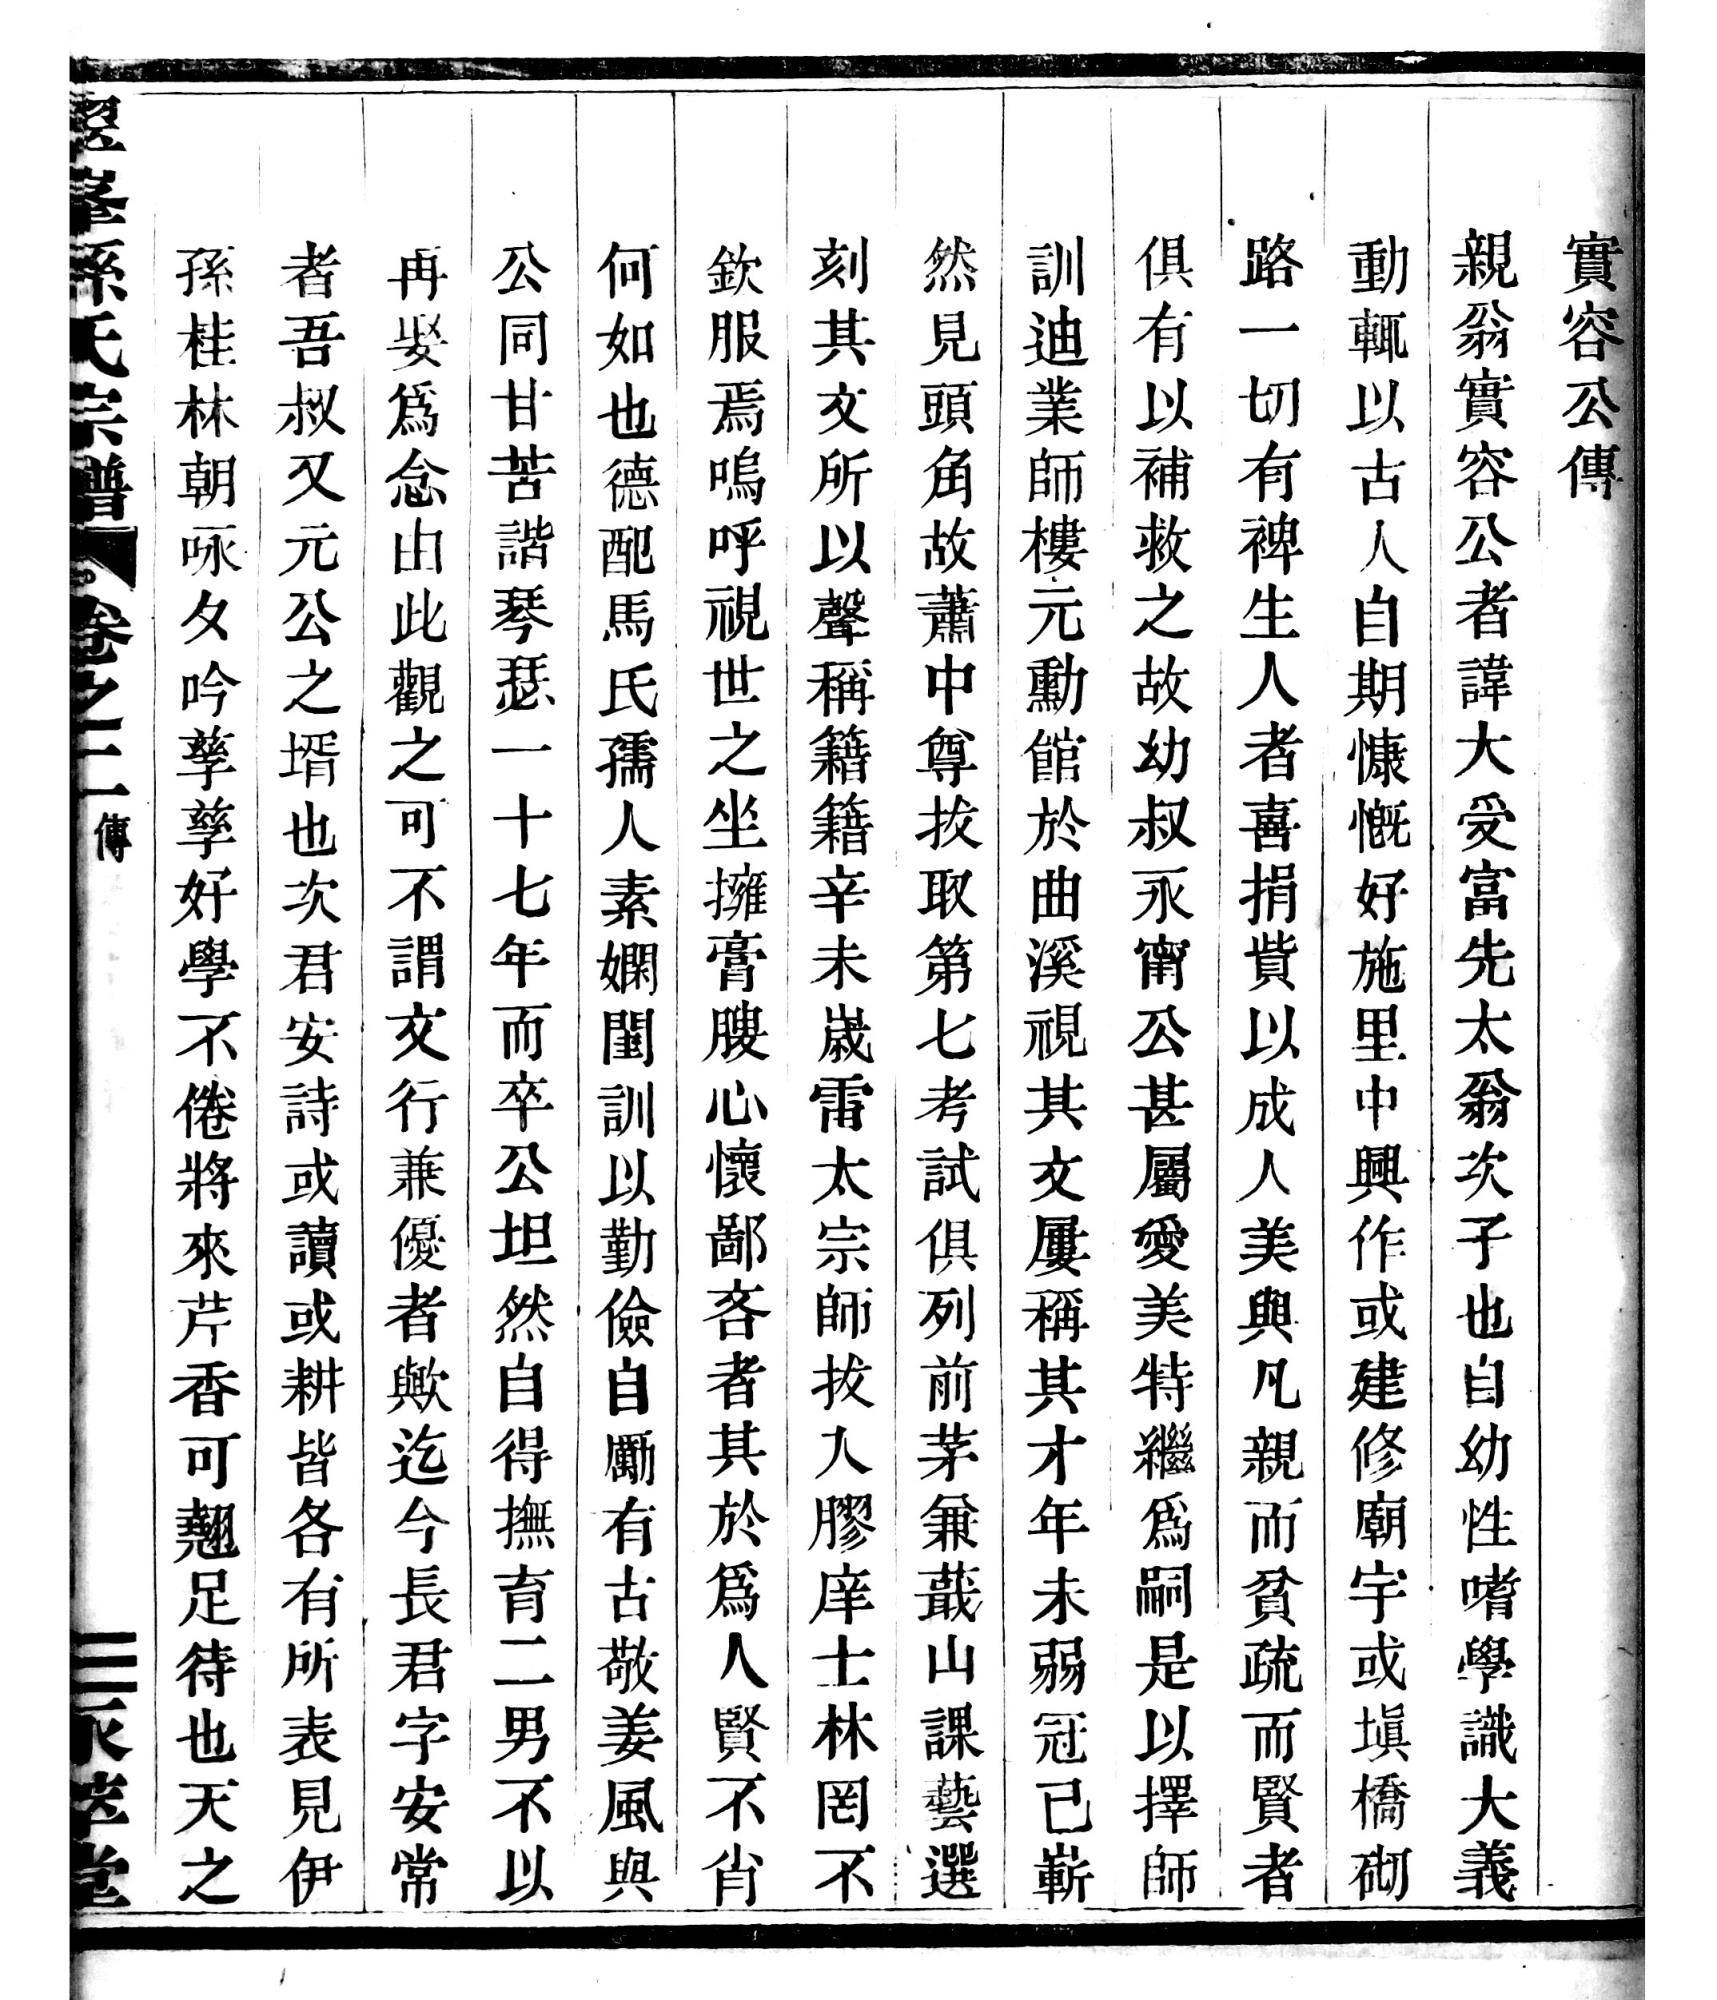 實容公傳
親翁實容公者諱大受富先太翁次子也自幼性嗜學識大義
動輒以古人自期慷慨好施里中興作或建修廟宇或塡橋砌
路一切有裨生人者喜捐貲以成人美與凡親而貧疏而賢者
俱有以補救之故幼叔永甯公甚屬愛美特繼爲嗣是以擇師
訓迪業師樓元勳館於曲溪視其文屢稱其才年未弱冠已嶄
然見頭角故蕭中尊拔取第七考試俱列前茅兼蕺山課藝選
刻其文所以聲稱籍籍辛未嵗雷太宗師拔入膠庠士林罔不
欽服焉嗚呼視世之坐擁膏腴心懷鄙吝者其於爲人賢不肖
何如也德配馬氏孺人素嫻閨訓以勤儉自勵有古敬姜風與
公同甘苦諧琴瑟一十七年而卒公坦然自得撫育二男不以
再娶爲念由此觀之可不謂文行兼優者歟迄今長君字安常
者吾叔又元公之壻也次君安詩或讀或耕皆各有所表見伊
孫桂林朝咏夕吟孳孳好學不倦將來芹香可翹足待也天之
峯孫氏宗譜 卷之二 傳 三 永萃堂